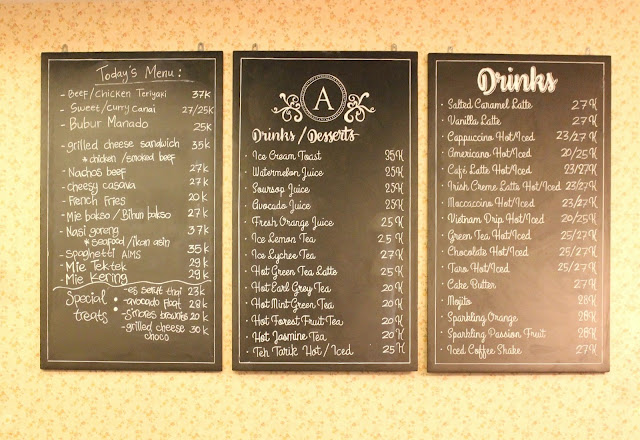 Today's Menu :
- Beef/Chicken Teriyaki 37K
- Sweet/curry Canai 27/25K
- Bubur Manado 25K
- grilled cheese sandwich 35k
* chicken/smoked beef
- Nachos beef 27k
- cheesy casava 27k
- French Fries 20k
- Mie bakso/Bihun bakso 27k
- Nasi goreng 37k
* seafood/ikan asin
- spaghetti AIMS 35k
- Mie Tektek 29k
- Mie Kering 29k
Special treats :
- es serut thai 23k
- avocado float 29k
- s'mores brownies 20k
- grilled cheese choco 30k
A
Drinks/Desserts
· Ice Cream Toast 35K
· Watermelon Juice 25K
· Soursop Juice 25K
· Avocado Juice 25K
· Fresh Orange Juice 25K
· Ice Lemon Tea 25K
· Ice Lychee Tea 27K
· Hot Green Tea Latte 25K
· Hot Earl Grey Tea 20K
· Hot Mint Green Tea 20K
· Hot Forest Fruit Tea 20K
· Hot Jasmine Tea 20K
· Teh Tarik Hot/Iced 25K
Drinks
· Salted Caramel Latte 27K
· Vanilla Latte 27K
· Cappuccino Hot/Iced 23/27K
· Americano Hot/Iced 20/25K
· Café Latte Hot/Iced 23/27K
· Irish Creme Latte Hot/Iced 23/27K
· Maccaccino Hot/Iced 23/27K
· Vietnam Drip Hot/Iced 20/25K
· Green Tea Hot/Iced 25/27K
· Chocolate Hot/Iced 25/27K
· Taro Hot/Iced 25/27K
· Cake Butter 27K
· Mojito 28K
· Sparkling Orange 28K
· Sparkling Passion Fruit 28K
· Iced Coffee Shake 27K